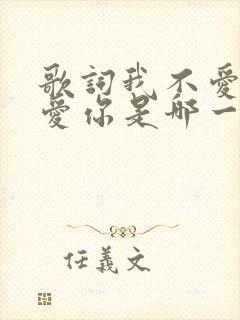 歌詞我不愛
愛你是那一
任義文